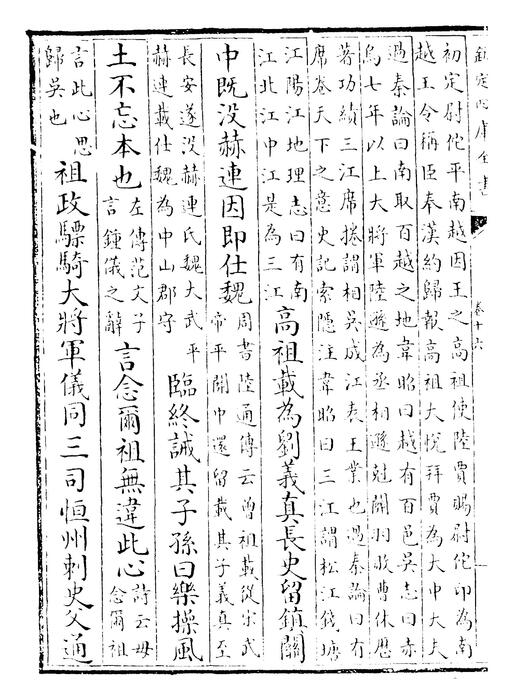 欽定四庫全書 卷十六
初定尉佗平南越因王之高祖使陸賈賜尉佗印為南
越王令稱臣奉漢約歸報高祖大悅拜賈為大中大夫
過秦論曰南取百越之地韋昭曰越有百邑吳志曰赤
烏七年以上大將軍陸遜為丞相遜尅關羽敗曹休歷
著功績三江席捲謂相吳成江表王業也過秦論曰有
席卷天下之意史記索隱注韋昭曰三江謂松江錢塘
江陽江地理志曰有南
江北江中江是為三江
高祖載為劉義真長史留鎮關
中既没赫連因即仕魏
周書陸通傳云曾祖載從宋武
帝平關中還留載其子義真至
長安遂没赫連氏魏大武平
赫連載仕魏為中山郡守
臨終誡其子孫曰樂操風
土不忘本也
左傳范文子
言鍾儀之辭
言念爾祖無違此心
詩云毋
念爾祖
言此心思
歸吳也
祖政驃騎大將軍儀同三司恒州刺史父通